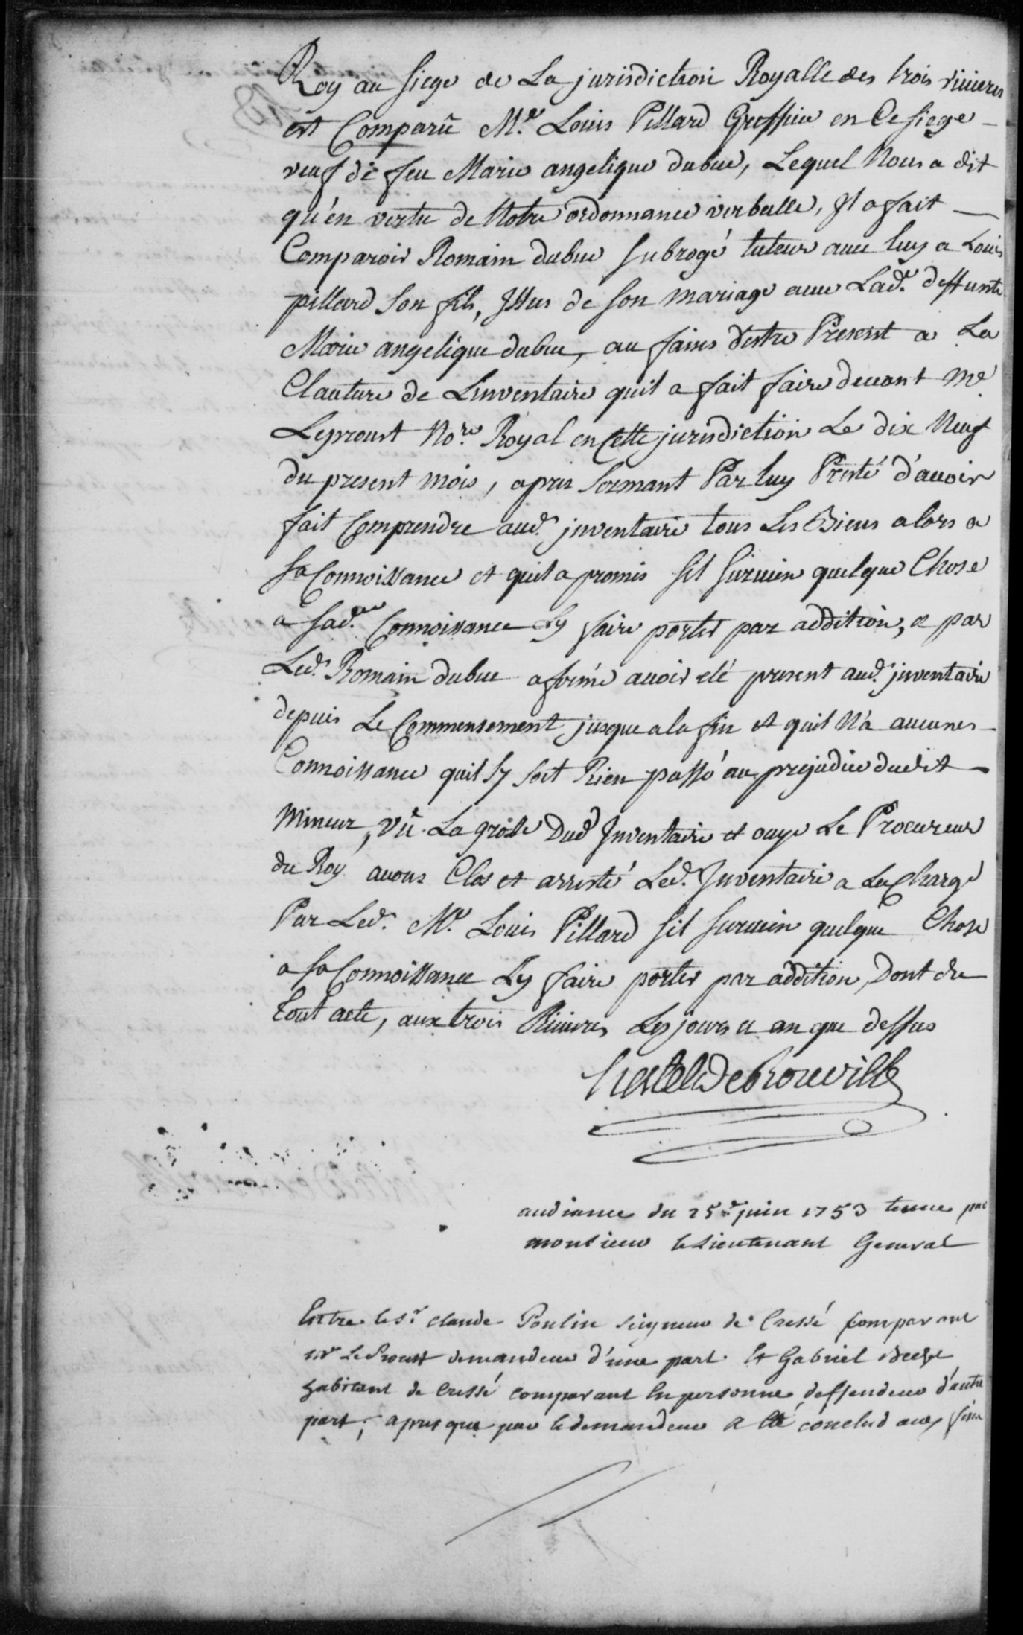 Roy au siege de La jurisdiction Royalle des trois rivieres
est Comparû Me. Louis Pillard Greffier en Ce siege
veuf de feu Marie angelique dubue, Lequel Nous a dit
qu'en vertu de Notre ordonnance verballe, Il a fait
Comparoir Romain dubue subrogé tuteur avec luy a Louis
pillard Son fils, Issus de son mariage avec Lade. deffunte
Marie angelique dubue, au fains d'estre Present a La
Clauture de L'inventaire quil a fait faire devant Me
Leproust Nore. Royal en Cette jurisdiction Le dix Neuf
du present mois, apres sermant Par luy Presté d'avoir
fait Comprendre aud. inventaire tous Les Biens alors a
sa Connoissance et quil a promis sil survien quelque Chose
a sad. Connoissance Ly faire porter par addition, & par
Led. Romain dubue afirmé avoir eté present aud. inventaire
depuis Le Commensement jusque a la fin et quil N'a aucunes
Connoissance quil sy soit Rien passé au prejudice dudit
Mineur, Vû La grosse Dud. Inventaire et ouye Le Procureur
du Roy avons Clos et arresté Led. Inventaire a La Charge
Par Led. Me. Louis Pillard sil survien quelque Chose
a sa Connoissance Ly faire porter par addition, Dont de
tout acte, aux trois Rivieres Les jours et an que dessus
hertel De Rouville
audiance du 25e juin 1753 tenue par
monsieur le Lieutenant General
Entre le Sr. claude Poulin seigneur de Cressé comparant
Me Le Proust demandeur d'une part Et Gabriel
habitant de Cressé comparant En personne deffendeur d'autre
part, apres que par le demandeur a Eté conclud aux fins